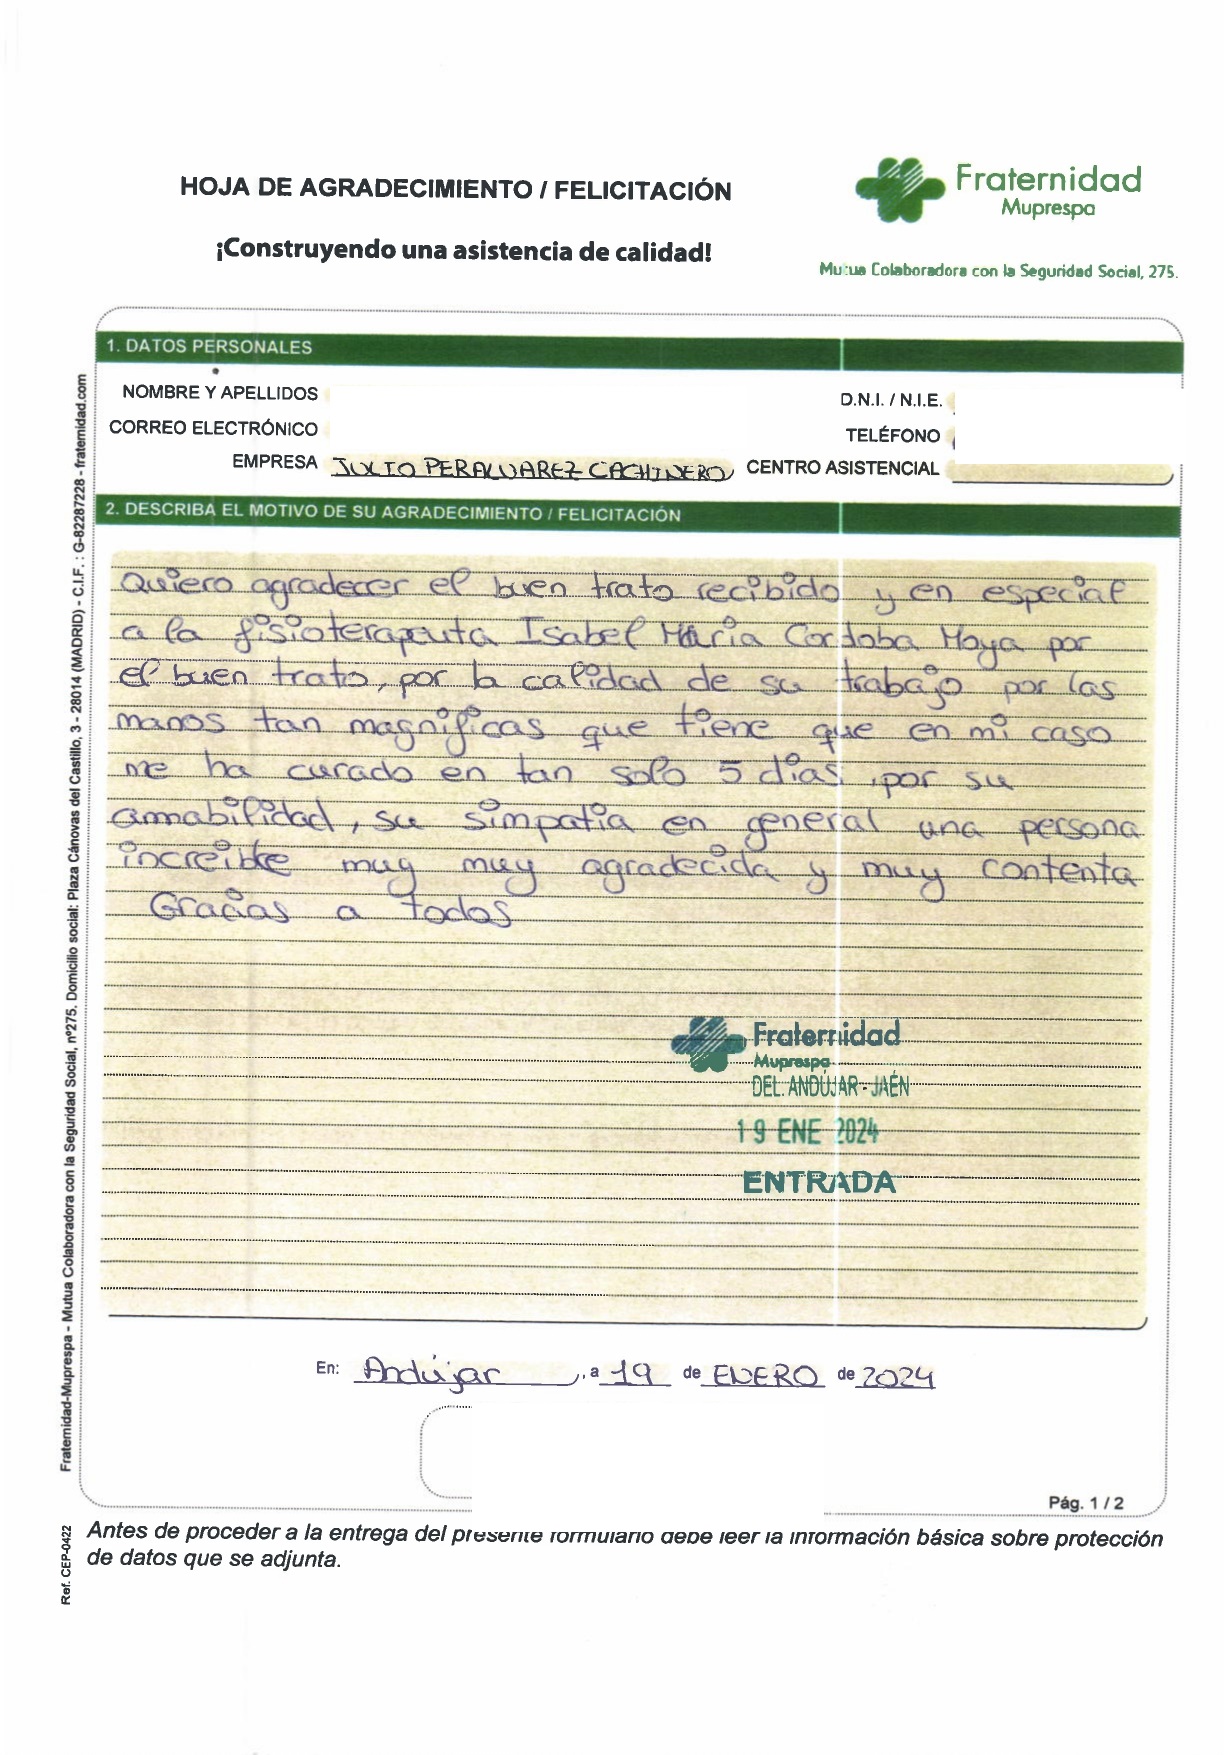 HOJA DE AGRADECIMIENTO / FELICITACIÓN
¡Construyendo una asistencia de calidad!
Fraternidad
Muprespa
Mutua Colaboradora con la Seguridad Social, 275.
1. DATOS PERSONALES
NOMBRE Y APELLIDOS
D.N.I. / N.I.E.
CORREO ELECTRÓNICO
TELÉFONO
EMPRESA JULIO PERALVAREZ CACHINERO CENTRO ASISTENCIAL
2. DESCRIBA EL MOTIVO DE SU AGRADECIMIENTO / FELICITACIÓN
Quiero agradecer el buen trato recibido y en especial
a la fisioterapeuta Isabel María Cordoba Moya por
el buen trato, por la calidad de su trabajo por las
manos tan magnificas que tiene que en mi caso
me ha curado en tan solo 5 dias, por su
amabilidad, su simpatia en general una persona
increible muy muy agradecida y muy contenta
Gracias a todos
Fraternidad
Muprespa
DEL. ANDÚJAR - JAÉN
19 ENE 2024
ENTRADA
En: Andújar, a 19 de ENERO de 2024
Pág. 1 / 2
Antes de proceder a la entrega del presente formulario debe leer la información básica sobre protección
de datos que se adjunta.
Fraternidad-Muprespa - Mutua Colaboradora con la Seguridad Social, nº275. Domicilio social: Plaza Cánovas del Castillo, 3 - 28014 (MADRID) - C.I.F. : G-82287228 - fraternidad.com
Ref. CEP-0422